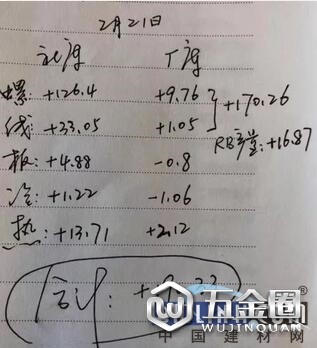 2月21日
社库 厂库
螺: +126.4 +9.76
+170.26
线: +33.05 +1.05
RB +16.87
板: +4.88 -0.8
冷: +1.22 -1.06
热: +13.71 +2.12
合计: +
五金圈
WUJINQUAN.COM
中国建材网